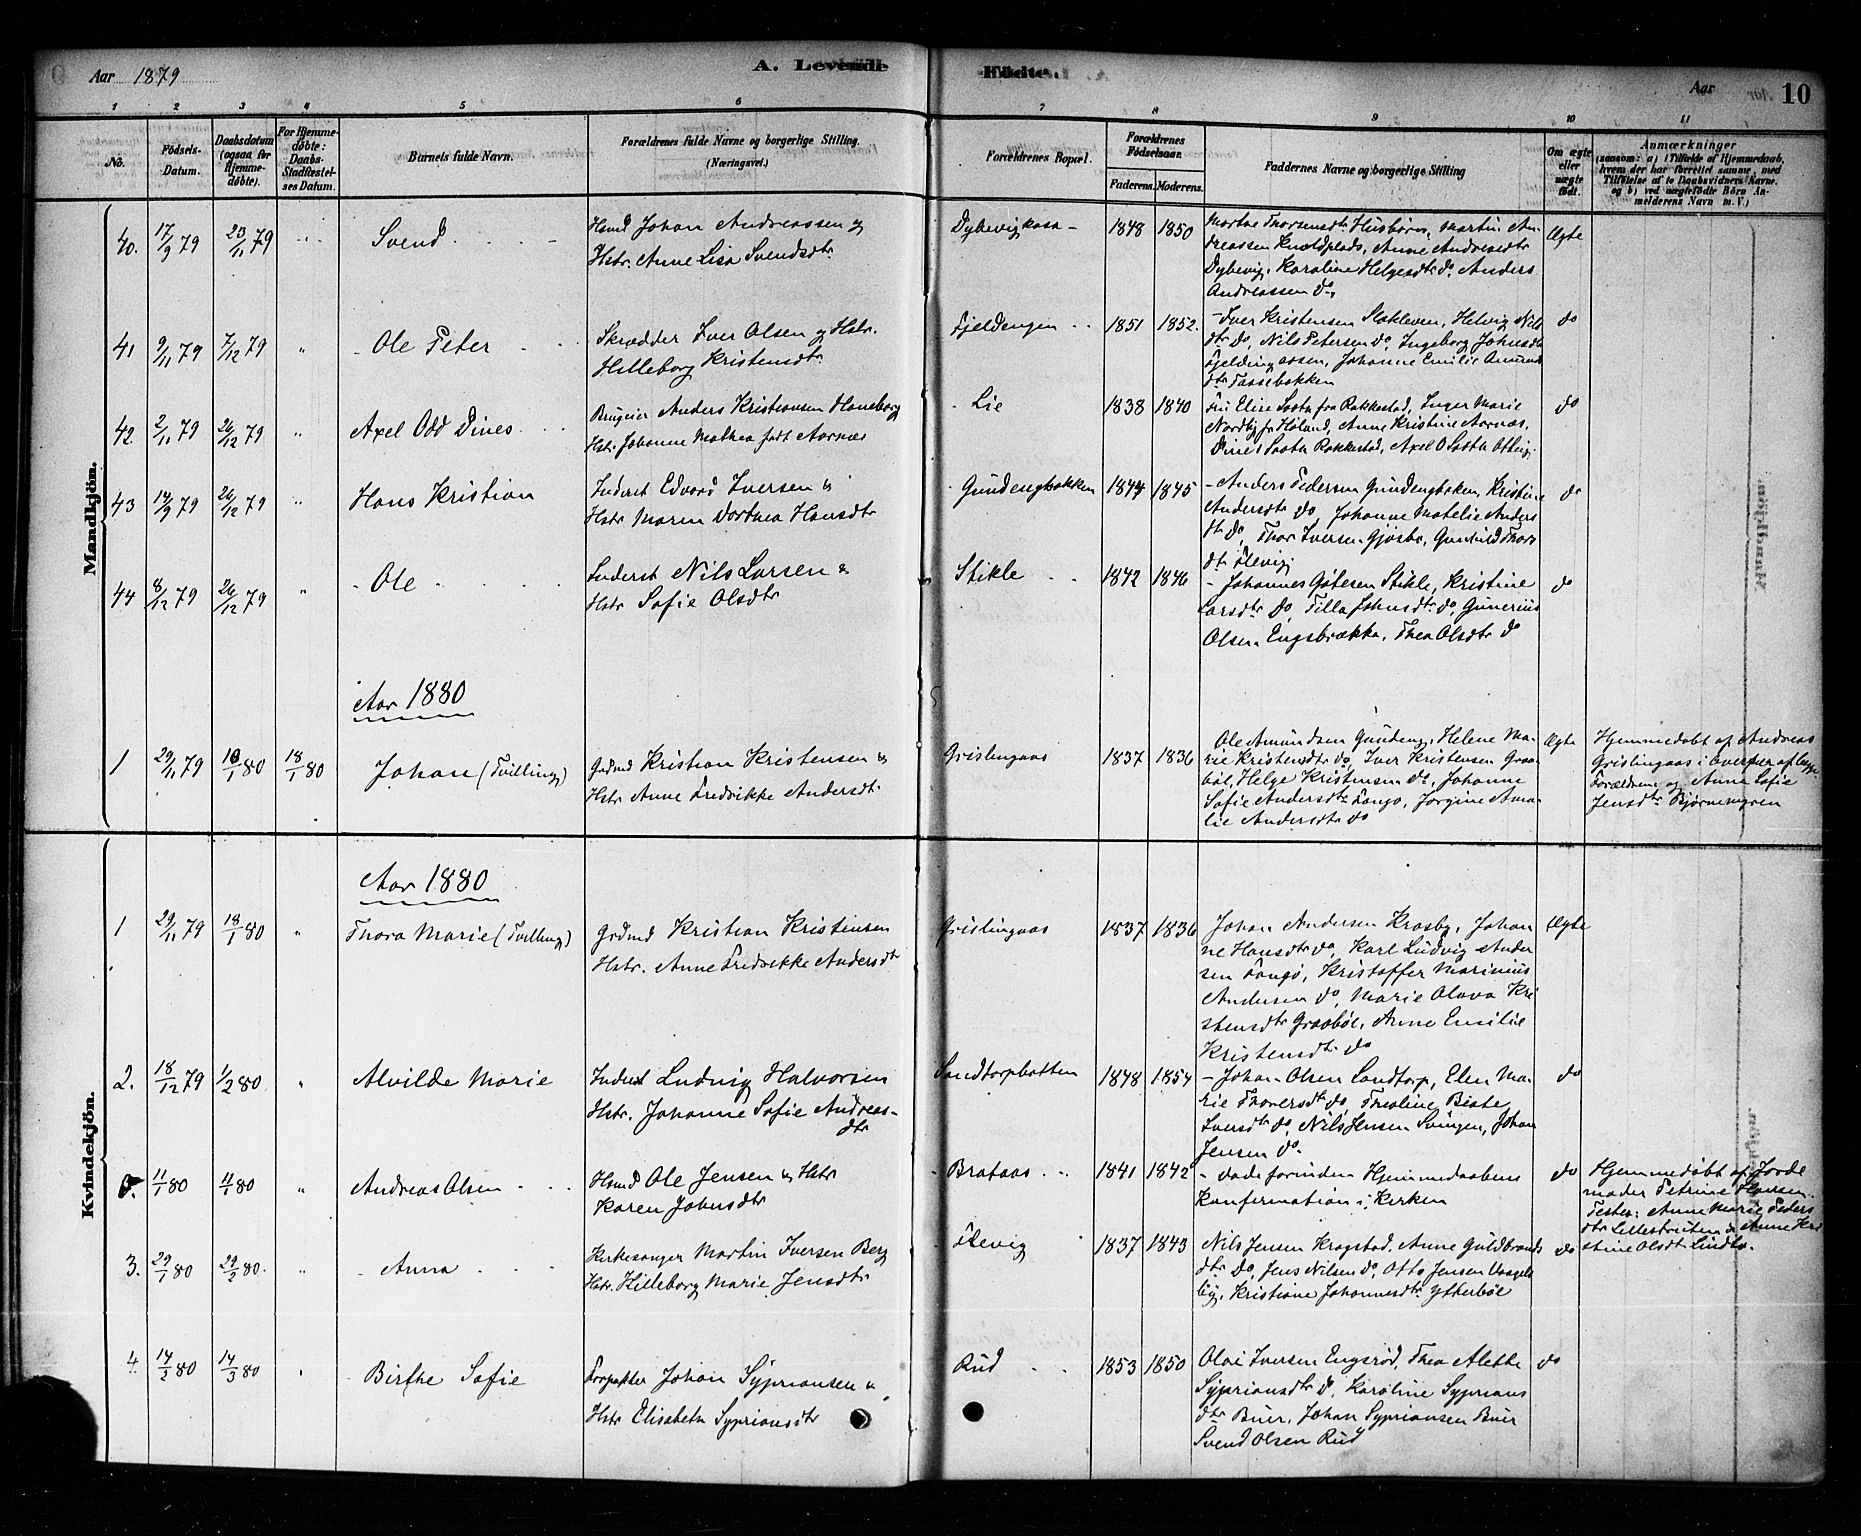 Aar 1879
A. Levende
Fødte.
Aar
10
1 2 3 4 5 6 7 8 9 10 11
No.
Födsels-Datum.
Daabsdatum (ogsaa for Hjemme-døbte).
For Hjemme-døbte: Daabs-Stadfæstel-ses Datum.
Barnets fulde Navn.
Forældrenes fulde Navne og borgerlige Stilling. (Næringsvei.)
Forældrenes Bopæl.
Forældrenes Födselsaar.
Faderens. Moderens.
Faddernes Navne og borgerlige Stilling
Om ægte eller uægte født.
Anmærkninger
(saasom: a) i Tilfælde af Hjemmedaab, hvem der har forrettet samme, med Tilföielse af to Daabsvidners Navne. og b) ved uægtefödte Börn An-melderens Navn m. V.)
Mandkjön.
40. 17/9 79 23/11 79 " Svend
Hsmd Johan Andreassen &
Hstr. Anne Lisa Svendsdtr.
Dybevigkasa 1848 1850
Marthe Thorsensdtr Husbörn, Martin An-
dreassen Knoldplads, Anne Andreasdtr
Dybevig, Karoline Helgesdtr do, Anders
Andreassen do,
Ægte
41 9/11 79 7/12 79 " Ole Peter
Skrædder Iver Olsen & Hstr.
Helleborg Kristensdtr.
Fjeldengen 1851 1852.
Iver Kristensen Stokleven, Helvig Nils
dtr do, Nils Petersen do, Ingeborg Johnsdtr
Johanne Emilie Amund
dtr Tassebakken
do
42. 2/11 79 26/12 79 " Axel Odd Dines
Brugeier Anders Kristiansen Haneborg
Hstr. Johanne Mathea født Aarnæs
Lie 1838 1840
Elise Saxta fra Rakkestad, Inger Marie
Nordby fr Høland, Anne Kristine Aarnæs,
Dines Saxta Rakkestad, Axel O Saxta
do
43 14/9 79 26/12 79 " Hans Kristian
Inderst Edvard Iversen &
Hstr Maren Dorthea Hansdtr
Gundengbakken 1844 1845
Anders Pedersen Gundengbakken, Kristine
Andersdtr do, Johanne Matelie Anders
dtr do, Thor Iversen Gjøsbo, Gunhild Thors
dtr Flevig
do
44 8/12 79 26/12 79 " Ole
Inderst Nils Larsen &
Hstr Sofie Olsdtr
Stikle 1842 1846
Johannes Gøtesen Stikle, Kristine
Larsdtr do, Tilla Johnsdtr do, Gunerius
Olsen Engsbrækka, Thea Olsdtr do
do
Aar 1880
1 29/11 79 18/1 80 18/1 80 Johan (Tvilling)
Grdmd Kristian Kristensen &
Hstr Anne Fredrikke Andersdt.
Grislingaas 1837 1836
Ole Amundsen Gundeng, Helene Ma-
rie Kristensdtr do, Iver Kristensen Graa-
bøl, Helge Kristensen do, Johanne
Sofie Andersdtr Tangø, Jørgine Ama-
lie Andersdtr do
Ægte
Hjemmedøbt af Andreas
Grislingaas i Overvær af begge
Forældrene og Anne Sofie
Jensdtr Bjørnemyren
Kvindekjön.
Aar 1880
1 29/11 79 18/1 80 " Thora Marie (Tvilling)
Grdmd Kristian Kristensen
Hstr. Anne Fredrikke Andersdt
Grislingaas 1837 1836
Johan Andersen Krosby, Johan
ne Hansdtr do, Karl Ludvig Ander
sen Tangø, Kristoffer Marinius
Andersen do, Marie Olava Kri
stensdtr Graabøl, Anne Emilie
Kristensdtr do
Ægte
2. 18/12 79 1/2 80 " Alvilde Marie
Inderst Ludvig Halvorsen
Hstr. Johanne Sofie Andreas-
dtr
Sandtorpbotten 1848 1854
Johan Olsen Sandtorp, Elen Ma-
rie Thoversdtr do, Theoline Beate
Iversdtr do, Nils Jensen Svingen, Johan
Jensen do.
do
0. 11/1 80 11/1 80 " Andreas Olsen
Hsmd Ole Jensen & Hstr
Karen Johnsdtr
Brataas 1841 1842
døde forinden Hjemmedaabens
Konfirmation i Kirken
do
Hjemmedøbt af Jorde
moder Petrine Hansen.
Testes: Anne Marie Peders
dtr Lillestruten & Anne Kri
stine Olsdt Lindto.
3. 29/1 80 29/2 80. " Anna
Kirkesanger Martin Iversen Berg
Hstr. Hilleborg Marie Jensdtr
Flevig 1837 1843
Nils Jensen Kragstad, Anne Guldbrands
dtr do, Jens Nilsen do, Otto Jensen Vaagels
by, Kristiane Johannesdtr Ytterbøl
do
4. 14/2 80 14/3 80 " Birthe Sofie
Forpakter Johan Syprionsen &
Hstr Elisabeth Sypriansdtr
Rud 1853 1850
Olai Iversen Engsrød, Thea Alette
Sypriansdtr do, Karoline Syprians
dtr Buer, Johan Syprionsen Buer
Svend Olsen Rud
do